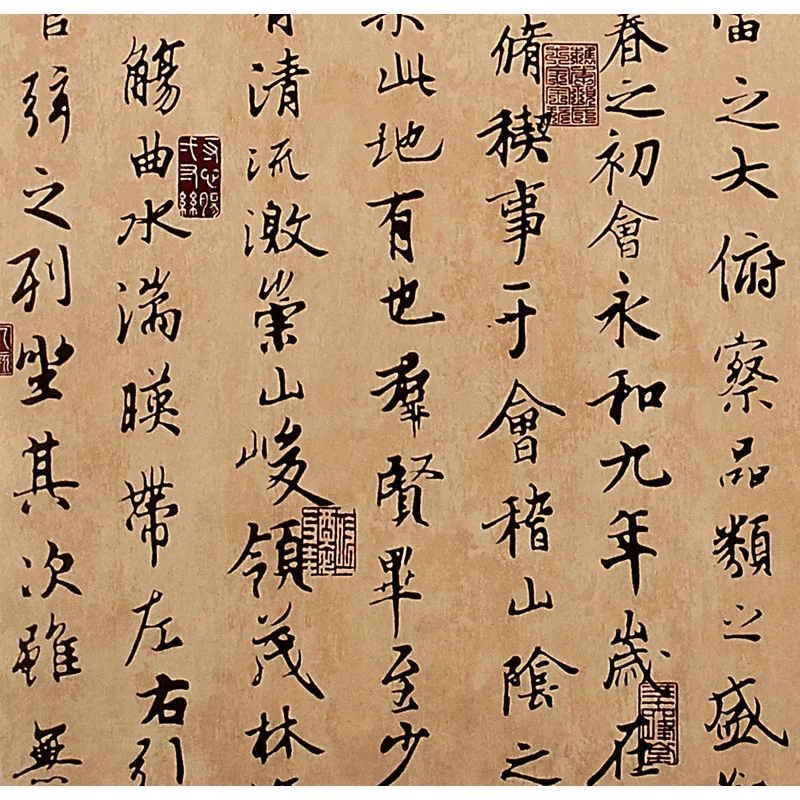 之大俯察品類之盛
春之初會永和九年歲在
脩稧事于會稽山陰之
此地有也群賢畢至少
有清流激崇山峻領茂林
觴曲水湍暎帶左右引
弦之列坐其次雖無